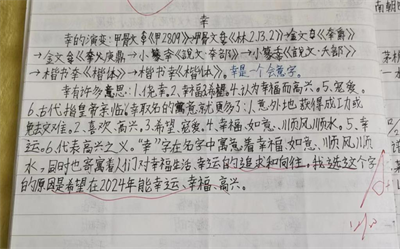 幸
幸的演变:甲骨文《甲2809》→甲骨文《林2.13.2》→金文《幸爵》
→金文《幸父庚鼎》→小篆幸《說文·幸部》→小篆幸《說文·夭部》
→楷书幸《楷体》→楷书幸《楷体》。幸是一个会意字。
幸有许多意思:1.侥幸。2.幸福。3.希望。4.认为幸福而高兴。5.宠爱。
6.古代指皇帝亲临。幸取名的寓意就更多了:1.意外地获得成功或
免去灾难。2.喜欢、高兴。3.希望、宠爱。4.幸福、如意、顺风顺水。5.幸
运。6.代表高兴之义。“幸”字在名字中寓意着幸福、如意、顺风顺
水,同时也寄寓着人们对幸福生活、幸运的追求和向往。我选这个字
的原因是希望在2024年能幸运、幸福、高兴。